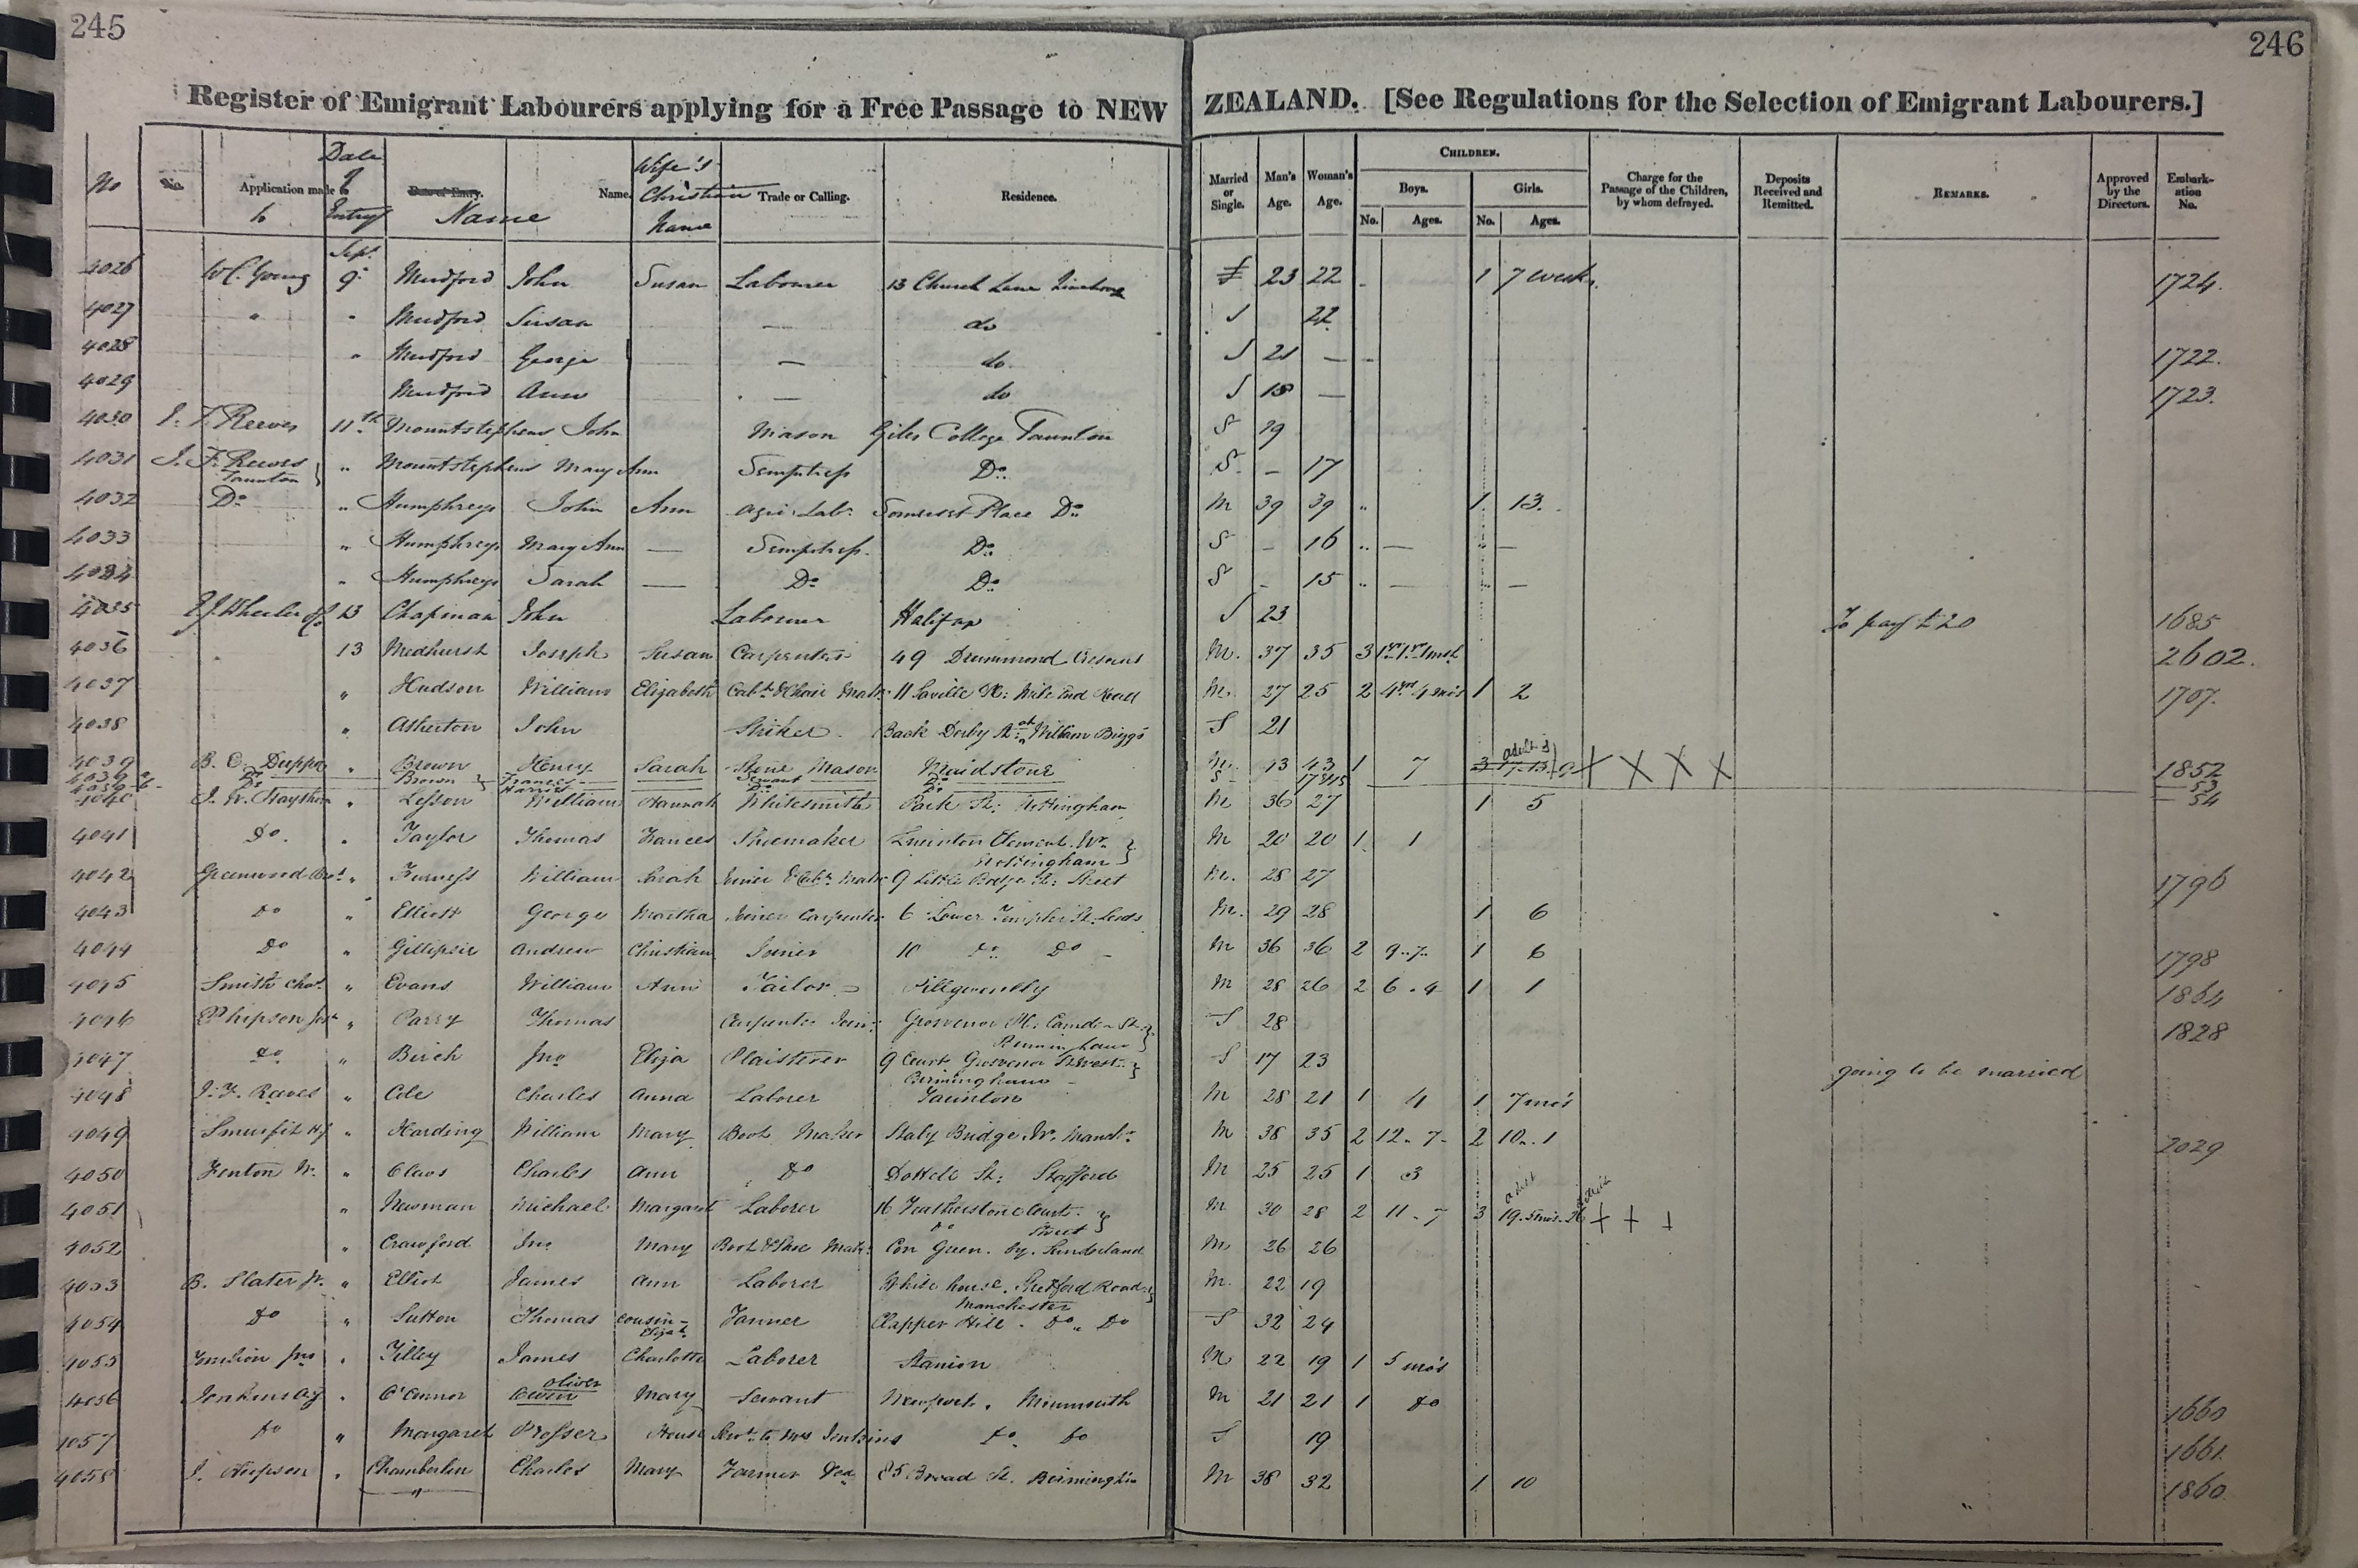 245
246
Register of Emigrant Labourers applying for a Free Passage to NEW ZEALAND. [See Regulations for the Selection of Emigrant Labourers.]
No No. Application made to Date of Entry Date of Entry. Name Name. Wife's Christian Name Trade or Calling. Residence. Married or Single. Man's Age. Woman's Age. CHILDREN. Boys. No. Ages. Girls. No. Ages. Charge for the Passage of the Children, by whom defrayed. Deposits Received and Remitted. REMARKS. Approved by the Directors. Embarkation No.
Sept.
4026 W C. Young 9 Mudford John Susan Labourer 13 Church Lane 23 22 1 7 weeks 1724.
4027 " " Mudford Susan — do S 22
4028 " Mudford George — do S 21 — 1722.
4029 Mudford Ann — do S 18 — 1723.
4030 J. F. Reeves 11th Mountstephens John Mason Giles College Taunton S 19
4031 J. F. Reeves Taunton } " Mountstephens Mary Ann Sempstress Do S. – 17
4032 Do " Humphreys John Ann Agri. Labr. Somerset Place Do M 39 39 " 1 13.
4033 " Humphreys Mary Ann — Sempstress. Do S – 16 " — " —
4034 " Humphreys Sarah — Do Do S – 15 " — " —
4035 13 Chapman John Labourer Halifax S 23 To pay £20 1685
4036 13 Medhurst Joseph Susan Carpenter 49 Drummond Crescent M. 37 35 3 2602.
4037 " Hudson William Elizabeth Cabt. & Chair Maker 11 Saville St: Mile End Road M. 27 25 2 1 2 1707.
4038 " Atherton John Striker Back Derby St. at William Biggs S 21
4039 B. C. Duppa " Brown Henry Sarah Stone Mason Maidstone M. 43 43 1 7 3 adults X X X X 1852
Do Brown } Frances Servant Do S 17 & 15 — 53
Do Harriet Do Do — 54
4040 " William Hannah Whitesmith Park St: Nottingham M 36 27 1 5
4041 do. " Taylor Thomas Frances Shoemaker Sneinton Element. Nr. Nottingham } M 20 20 1 1
4042 Greenwood " Furness William Sarah Joiner & Cabt. Maker 9 Little Street M. 28 27 1796
4043 do " Elliott George Martha Joiner Carpenter 6 Lower Templer St. Leeds M. 29 28 1 6
4044 do " Gillipsie Andrew Christian Joiner 10 do do M 36 36 2 9..7.. 1 6 1798
4045 Smith Chas. " Evans William Ann Tailor Pillgwenlly M 28 26 2 6 . 4 1 1 1864
4046 Phipson " Parry Thomas Carpenter Join: Grosvenor Pl: Camden St. Birmingham } S 28 1828
4047 do " Birch Jno Eliza Plaisterer 9 Court Grosvenor St. West Birmingham } S 17 23 going to be married
4048 J. F. Reeves " Cole Charles Anna Laborer Taunton M 28 21 1 4 1 7 mo's
4049 " Harding William Mary Boot Maker Staly Bridge Nr. Manchr. M 38 35 2 12.. 7.. 2 10.. 1 2029
4050 Fenton W. " Charles Ann do St: Stafford M 25 25 1 3
4051 " Newman Michael Margaret Laborer 16 Featherstone Court. do Street } M 30 28 2 11 - 7 3 adult + + +
4052 " Crawford Jno Mary Boot & Shoe Maker Sunderland M. 26 26
4053 B. Slater Jr. " Elliot James Ann Laborer White house, Stretford Road Manchester } M. 22 19
4054 do " Sutton Thomas cousin – Elizth. Tanner Clapper Hill - do " do S 32 24
4055 " Tilley James Charlotte Laborer Stanion M. 22 19 1 5 mo's
4056 " O'Connor Owen Oliver Mary Servant Newport. Monmouth M 21 21 1 do 1660
4057 do " Margaret Prosser House Servt. to Mrs Jenkins do do S 19 1661.
4058 " Chamberlin Charles Mary Farmer 85 Broad St. Birmingham M 38 32 1 10 1860
"